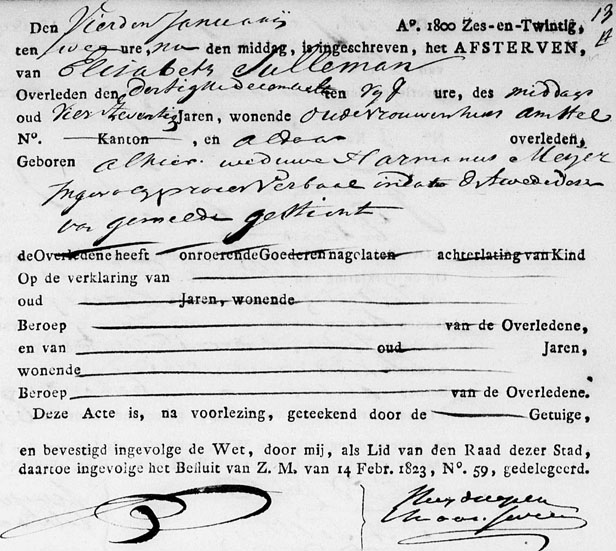 13
Den Vierden Januarij A°. 1800 Zes-en-Twintig,
ten twee ure, na den middag, is ingeschreven, het AFSTERVEN,
van Elisabeth Sulleman
Overleden den dertigste december ten vyf ure, des middags
oud Vier Zeventig Jaren, wonende oude vrouwenhuis Amstel
N°. Kanton, en aldaar overleden,
Geboren alhier. weduwe Harmanus Meyer
Ingevolg proces Verbaal in dato
van gemelde gesticht
de Overledene heeft onroerende Goederen nagelaten achterlating van Kind
Op de verklaring van
oud Jaren, wonende
Beroep van de Overledene,
en van oud Jaren,
wonende
Beroep van de Overledene.
Deze Acte is, na voorlezing, geteekend door de Getuige,
en bevestigd ingevolge de Wet, door mij, als Lid van den Raad dezer Stad,
daartoe ingevolge het Besluit van Z. M. van 14 Febr. 1823, N°. 59, gedelegeerd.